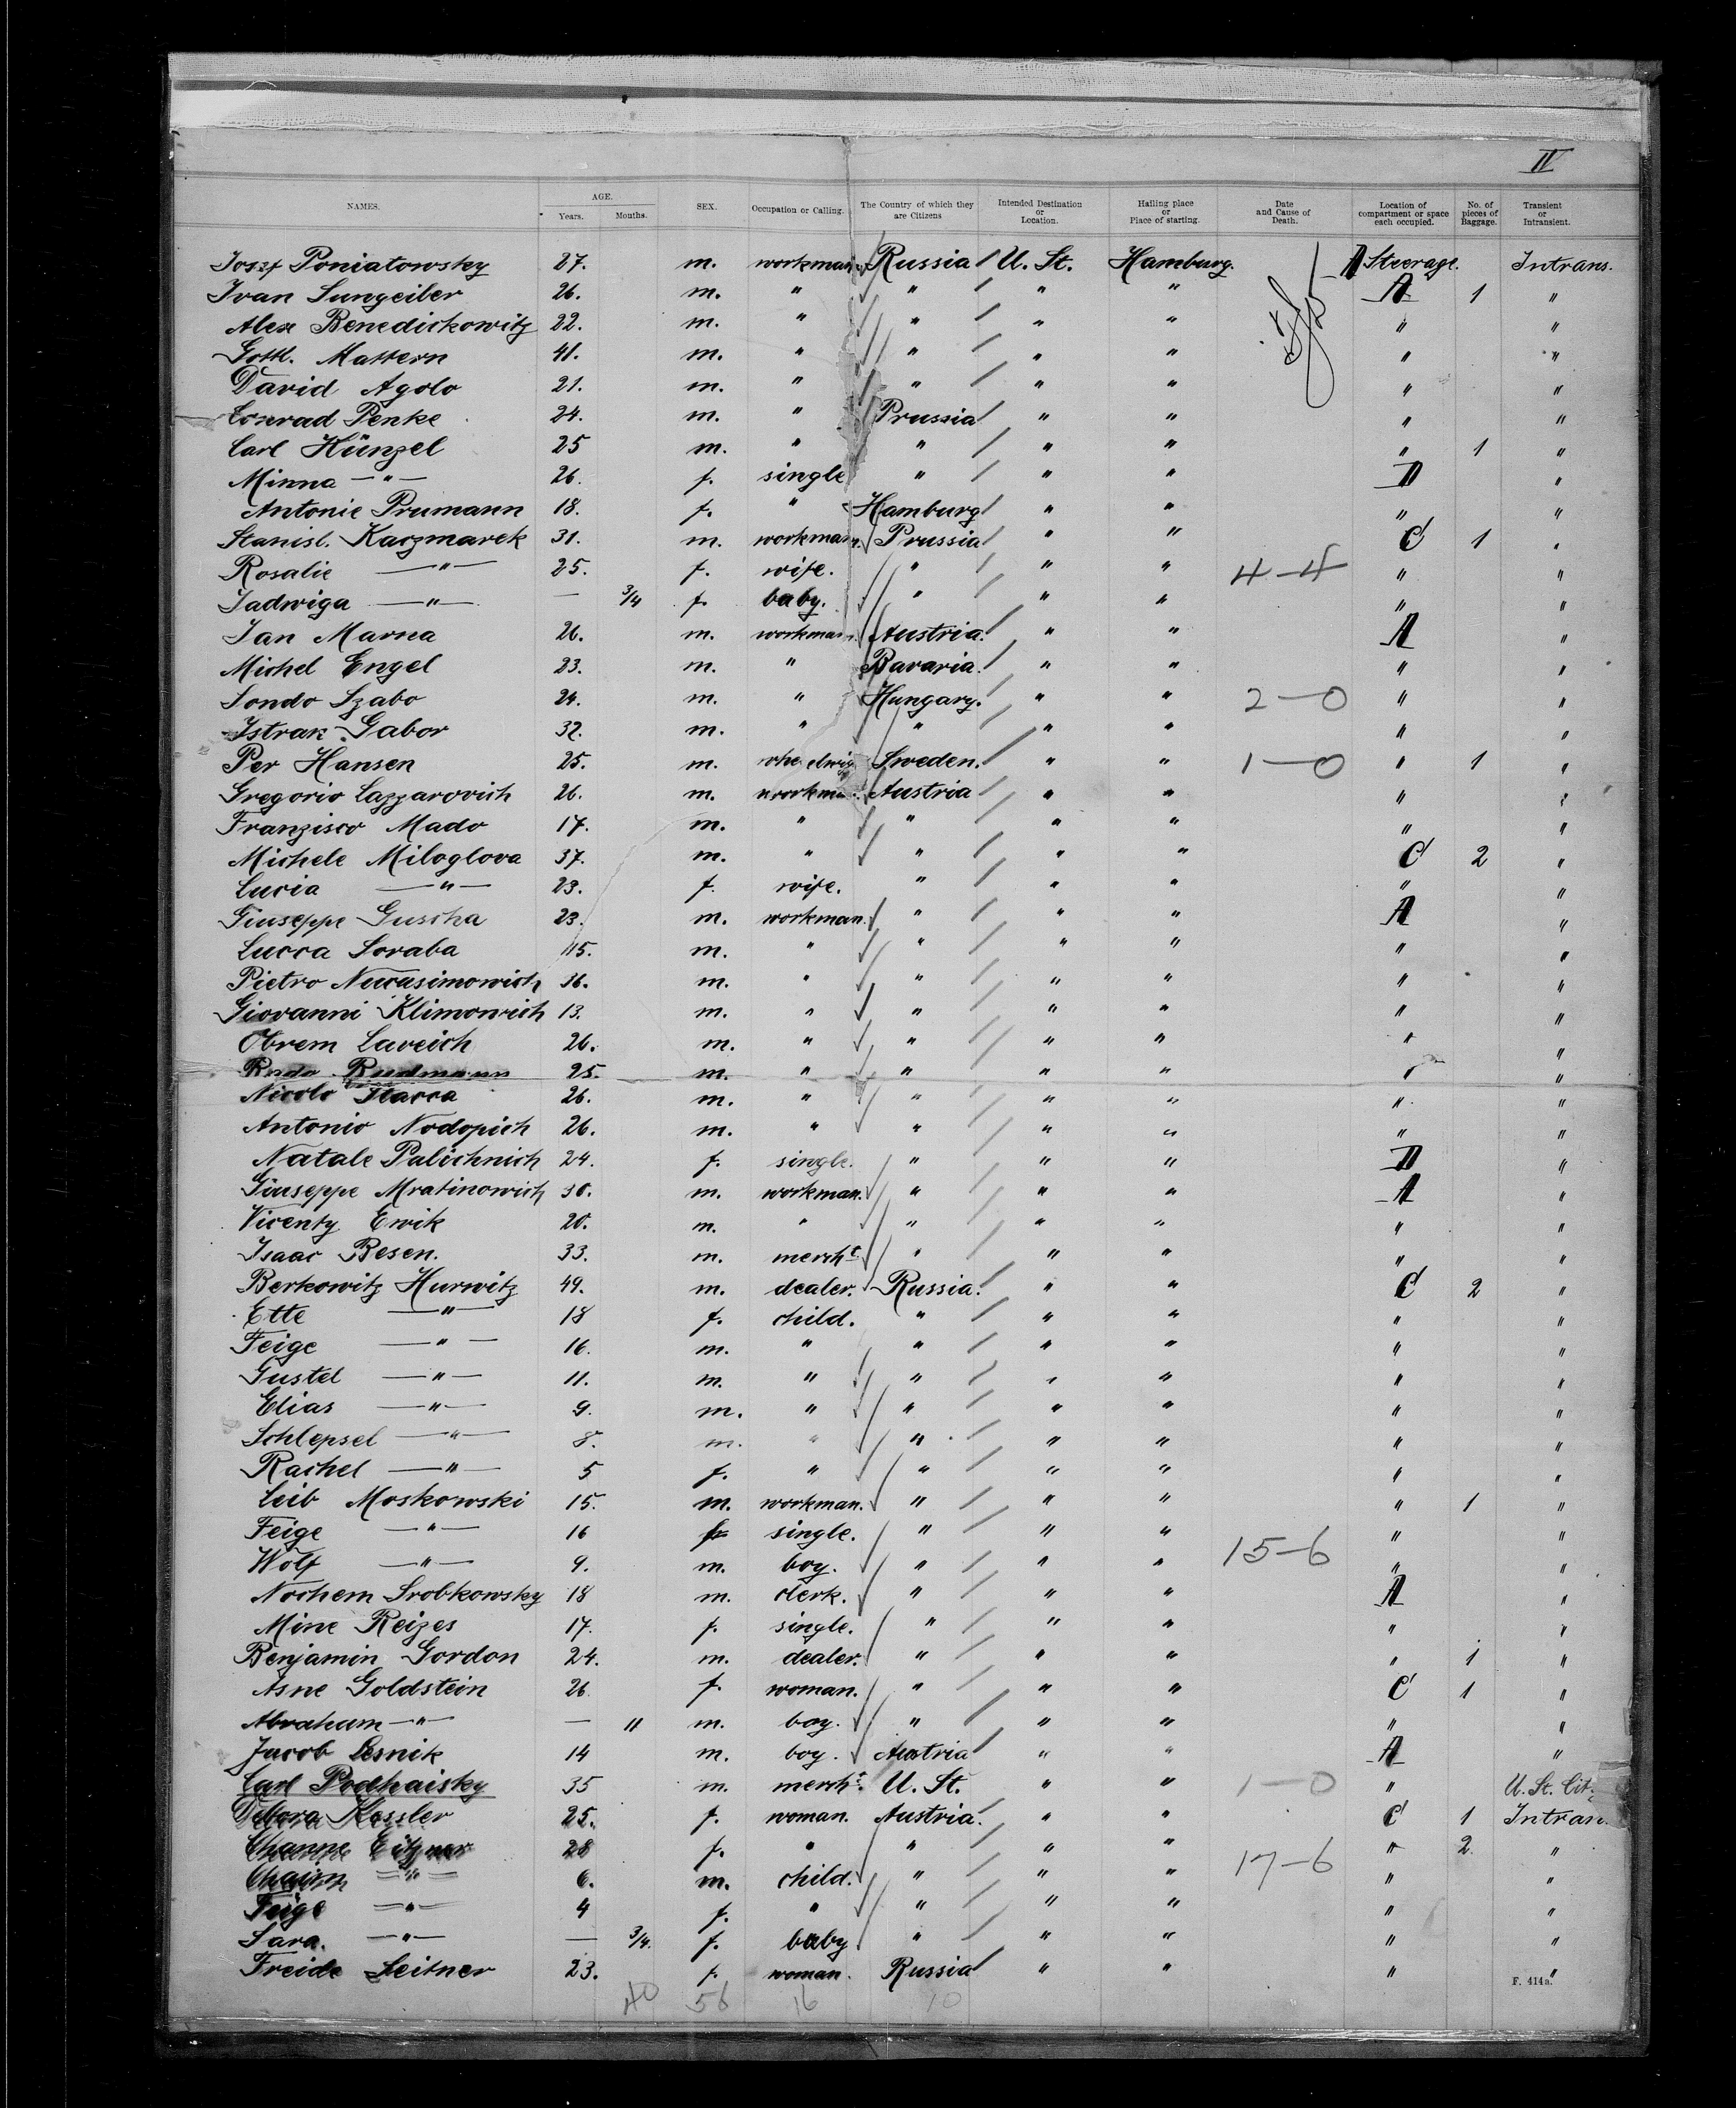 IV
NAMES. AGE. Years. Months. SEX. Occupation or Calling. The Country of which they are Citizens Intended Destination or Location. Hailing place or Place of starting. Date and Cause of Death. Location of compartment or space each occupied. No. of pieces of Baggage. Transient or Intransient.
Josef Poniatowsky 27. m. workman Russia U. St. Hamburg. Steerage. Intrans.
Ivan Sungeiler 26. m. " " " " A 1 "
Alex Benedickowitz 22. m. " " " " " "
Gottl. Mattern 41. m. " " " " " "
David Agolo 21. m. " " " " " "
Conrad Penke 24. m. " Prussia " " " "
Carl Künzel 25 m. " " " " " 1 "
Minna — " — 26. f. single " " " D "
Antonie Prumann 18. f. " Hamburg " " " "
Stanisl. Kaczmarek 31. m. workman. Prussia " " C 1 "
Rosalie — " — 25. f. wife. " " " 4-4 " "
Jadwiga — " — — 3/4 f. baby. " " " " "
Jan Marna 26. m. workman. Austria. " " A "
Michel Engel 23. m. " Bavaria. " " " "
Sondo Szabo 24. m. " Hungary. " " 2-0 " "
Istrak Gabor 32. m. " " " " " "
Per Hansen 25. m. Sweden. " " 1-0 " 1 "
Gregorio Lazzarovich 26. m. workman. Austria " " " "
Franzisco Mado 17. m. " " " " " "
Michele Miloglova 37. m. " " " " C 2 "
Lucia — " — 23. f. wife. " " " " "
Giuseppe Guscha 23. m. workman. " " " A "
Lucca Soraba 15. m. " " " " " "
Pietro Nucasimowich 36. m. " " " " " "
Giovanni Klimowich 13. m. " " " " " "
Obrem Laveich 26. m. " " " " " "
Rudmann 25. m. " " " " " "
Nicolo Stacca 26. m. " " " " " "
Antonio Nodopich 26. m. " " " " " "
Natale Palichnich 24. f. single. " " " D "
Giuseppe Mratinowich 30. m. workman. " " " A "
Vicenty Ewik 20. m. " " " " " "
Isaac Besen. 33. m. mercht. " " " " "
Berkowitz Hurwitz 49. m. dealer. Russia. " " C 2 "
Ette — " — 18 f. child. " " " " "
Feige — " — 16. m. " " " " " "
Gustel — " — 11. m. " " " " " "
Elias — " — 9. m. " " " " " "
Schlepsel — " — 8. m. " " " " " "
Rachel — " — 5 f. " " " " " "
Leib Moskowski 15. m. workman. " " " " 1 "
Feige — " — 16 f. single. " " " " "
Wolf — " — 9. m. boy. " " " 15-6 " "
Nochem Srobkowsky 18 m. clerk. " " " A "
Mine Reizes 17. f. single. " " " " "
Benjamin Gordon 24. m. dealer. " " " " 1 "
Asne Goldstein 26 f. woman. " " " C 1 "
Abraham — " — — 11 m. boy. " " " " "
Jacob Lesnik 14 m. boy. Austria " " A "
Carl Podhaisky 35 m. mercht. U. St. " " 1-0 " U. St. Cit.
Debora Kessler 25. f. woman. Austria. " " C 1 Intran.
Channe Eitzner 28 f. " " " " " 2. "
Chaim — " — 6. m. child. " " " 17-6 " "
Feige — " — 4 f. " " " " " "
Sara. — " — — 3/4. f. baby " " " " "
Freide Leitner 23. f. woman. Russia " " " "
F. 414a.
40 56 16 10